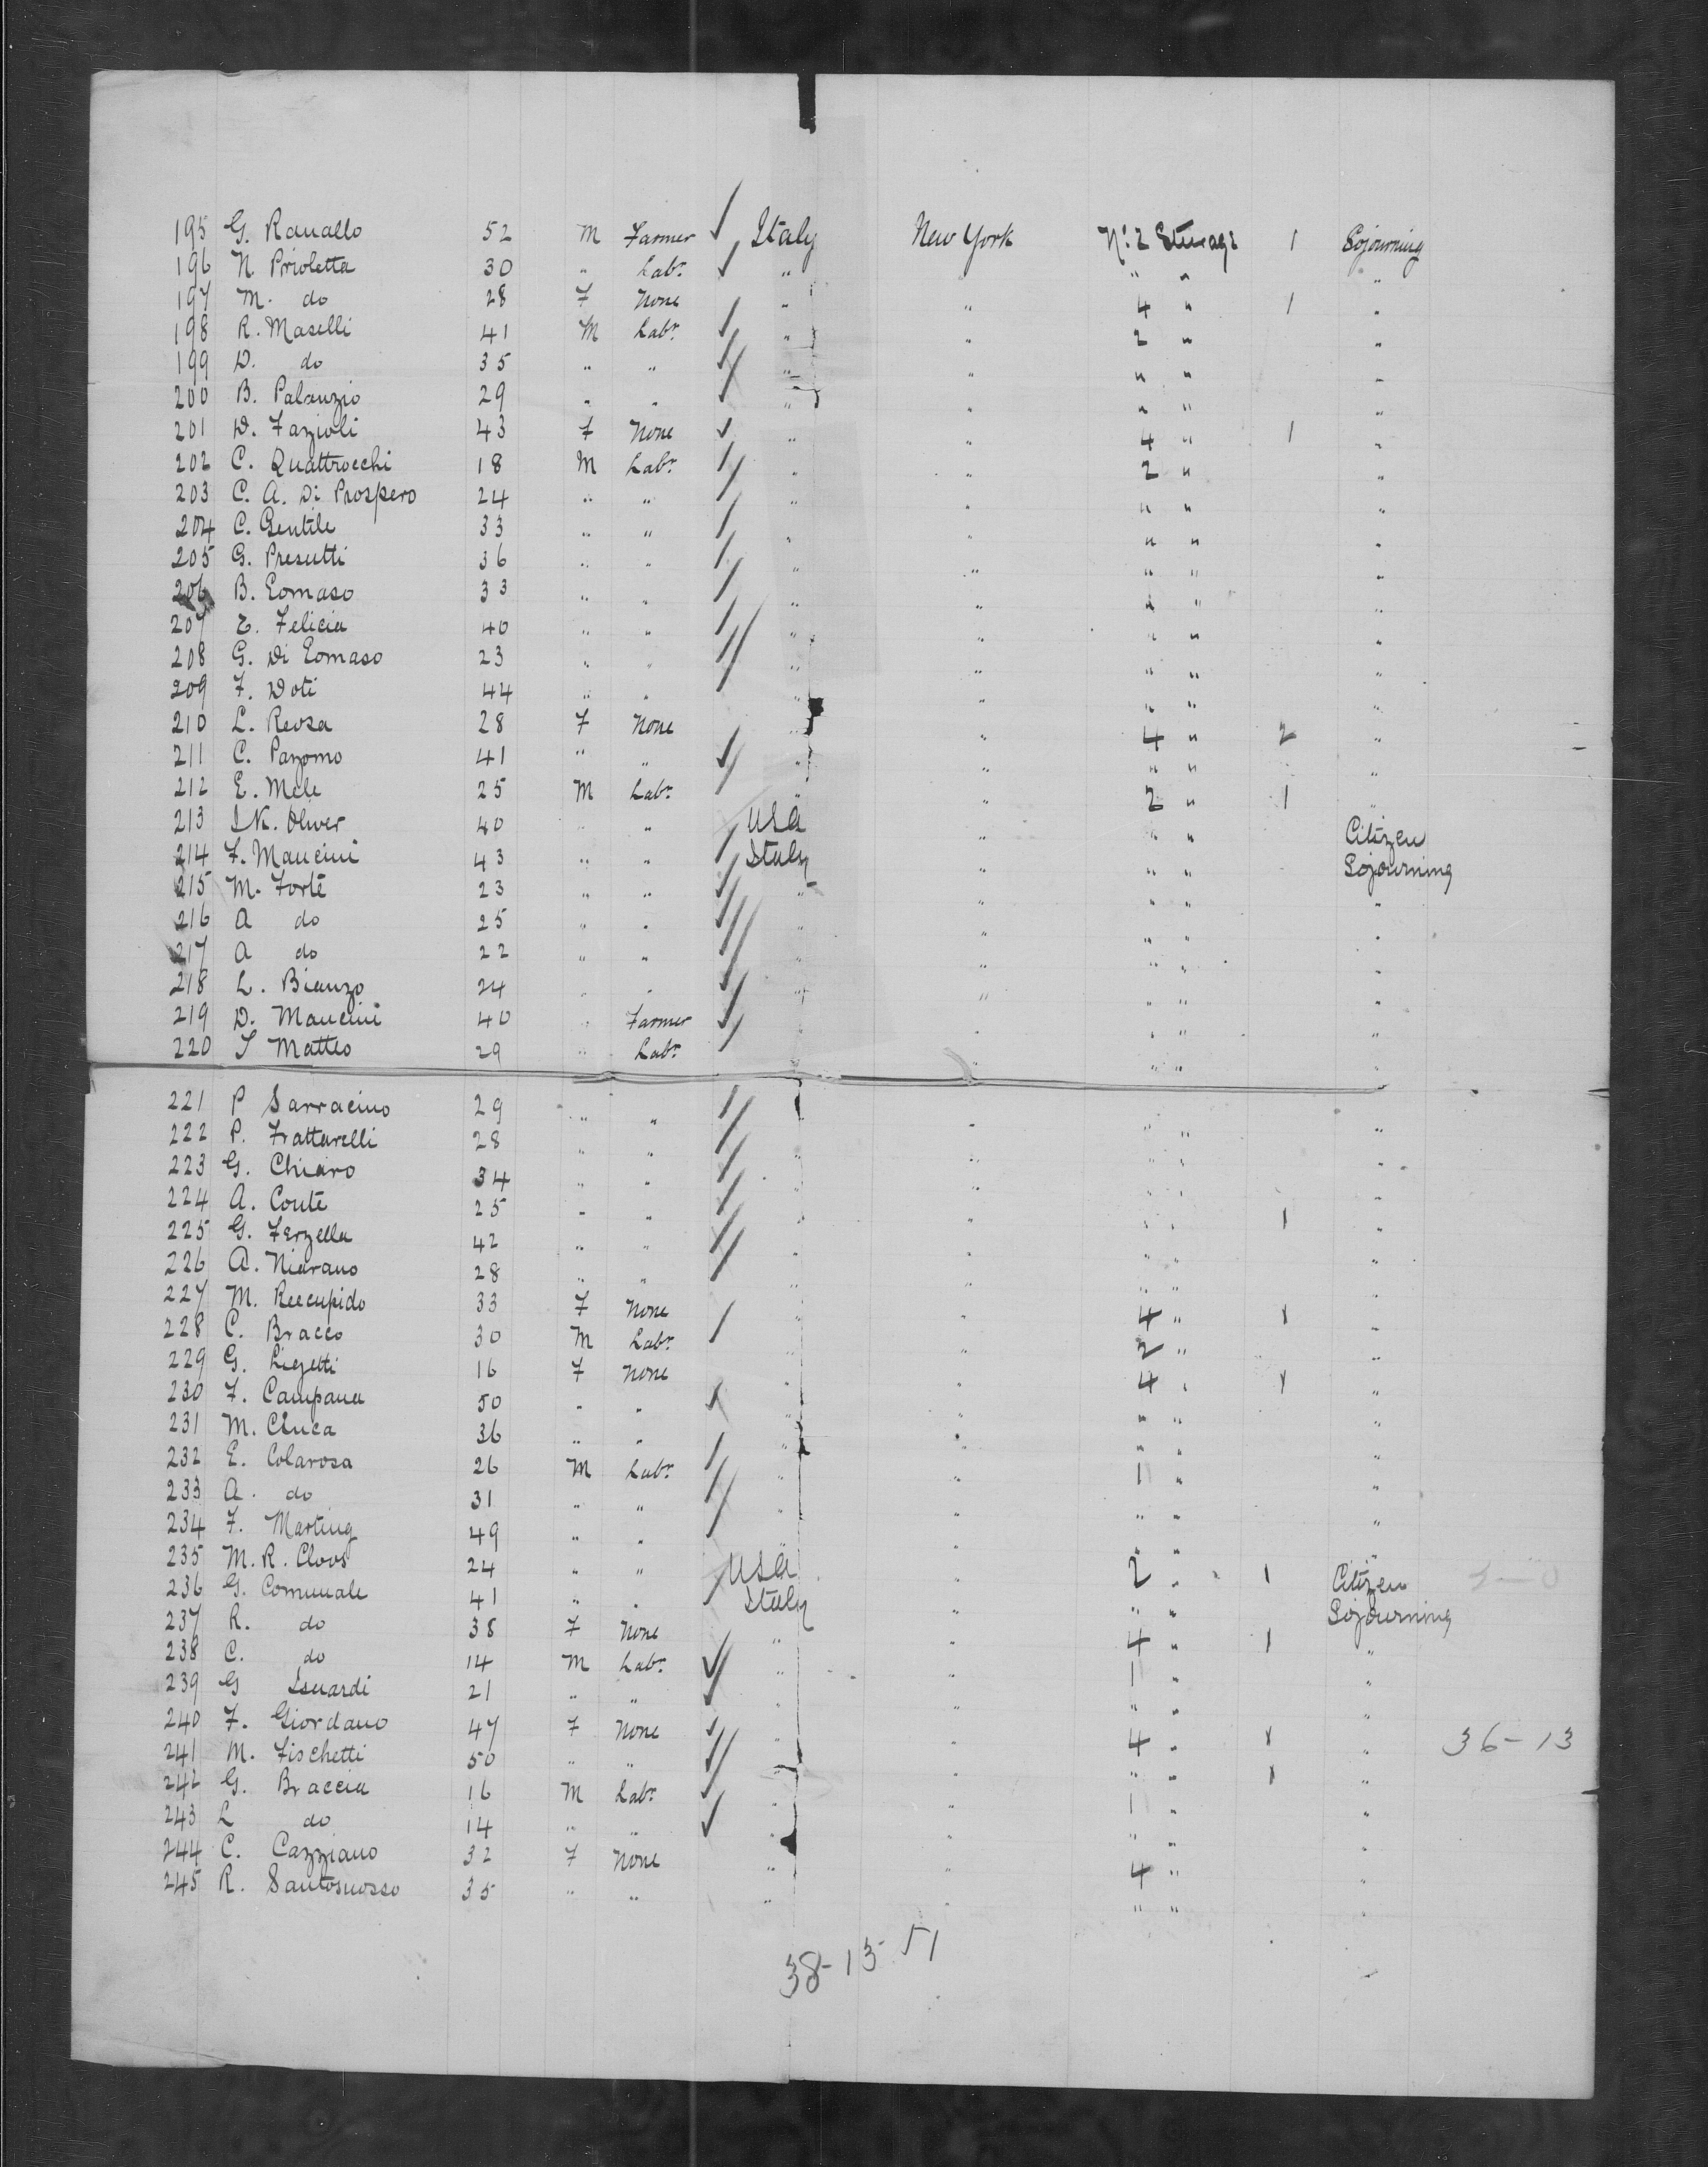 195 G. Ranallo 52 M Farmer Italy New York No 2 Steerage 1 Sojourning
196 N. Prioletta 30 " Labr " " " "
197 M. do 28 F None " " 4 " 1 "
198 R. Maselli 41 M Labr " " 2 " "
199 D. do 35 " " " " " " "
200 B. Palanzio 29 " " " " " " "
201 D. Fazioli 43 F None " " 4 " 1 "
202 C. Quattrocchi 18 M Labr " " 2 " "
203 C. A. Di Prospero 24 " " " " " " "
204 C. Gentile 33 " " " " " " "
205 G. Presutti 36 " " " " " " "
206 B. Tomaso 33 " " " " " " "
207 E. Felicia 40 " " " " " " "
208 G. Di Tomaso 23 " " " " " " "
209 F. Doti 44 " " " " " " "
210 L. Reosa 28 F None " " 4 " 2 "
211 C. Pazomo 41 " " " " " " "
212 E. Mele 25 M Labr " " 2 " 1 "
213 Oliver 40 " " USA " " " Citizen
214 F. Mancini 43 " " Italy " " " Sojourning
215 M. Forte 23 " " " " " " "
216 A do 25 " " " " " " "
217 A do 22 " " " " " " "
218 L. Bianzo 24 " " " " " " "
219 D. Mancini 40 " Farmer " " " "
220 S Matteo 29 " Labr " " " "
221 P Sarracino 29 " " " " " "
222 P. Frattarelli 28 " " " " " " "
223 G. Chiaro 34 " " " " " " "
224 A. Conte 25 " " " " " " 1 "
225 G. Ferzella 42 " " " " " " "
226 A. Niarano 28 " " " " " " "
227 M. Reecupido 33 F None " " 4 " 1 "
228 C. Bracco 30 M Labr " " 2 " "
229 G. Liezetti 16 F None " " 4 " 1 "
230 F. Campana 50 " " " " " " "
231 M. Cluca 36 " " " " " " "
232 E. Colarosa 26 M Labr " " 1 " "
233 A. do 31 " " " " " " "
234 F. Marting 49 " " " " " " "
235 M. R. Cloos 24 " " USA " 2 " 1 Citizen
236 G. Comunale 41 " " Italy " " " Sojourning
237 R. do 38 F None " " 4 " 1 "
238 C. do 14 M Labr " " 1 " "
239 G Isuardi 21 " " " " " " "
240 F. Giordano 47 F None " " 4 " 1 " 36-13
241 M. Fischetti 50 " " " " " " 1 "
242 G. Braccia 16 M Labr " " 1 " "
243 L do 14 " " " " " " "
244 C. Cazziano 32 F None " " 4 " "
245 R. Santosuosso 35 " " " " " " "
38-13-51